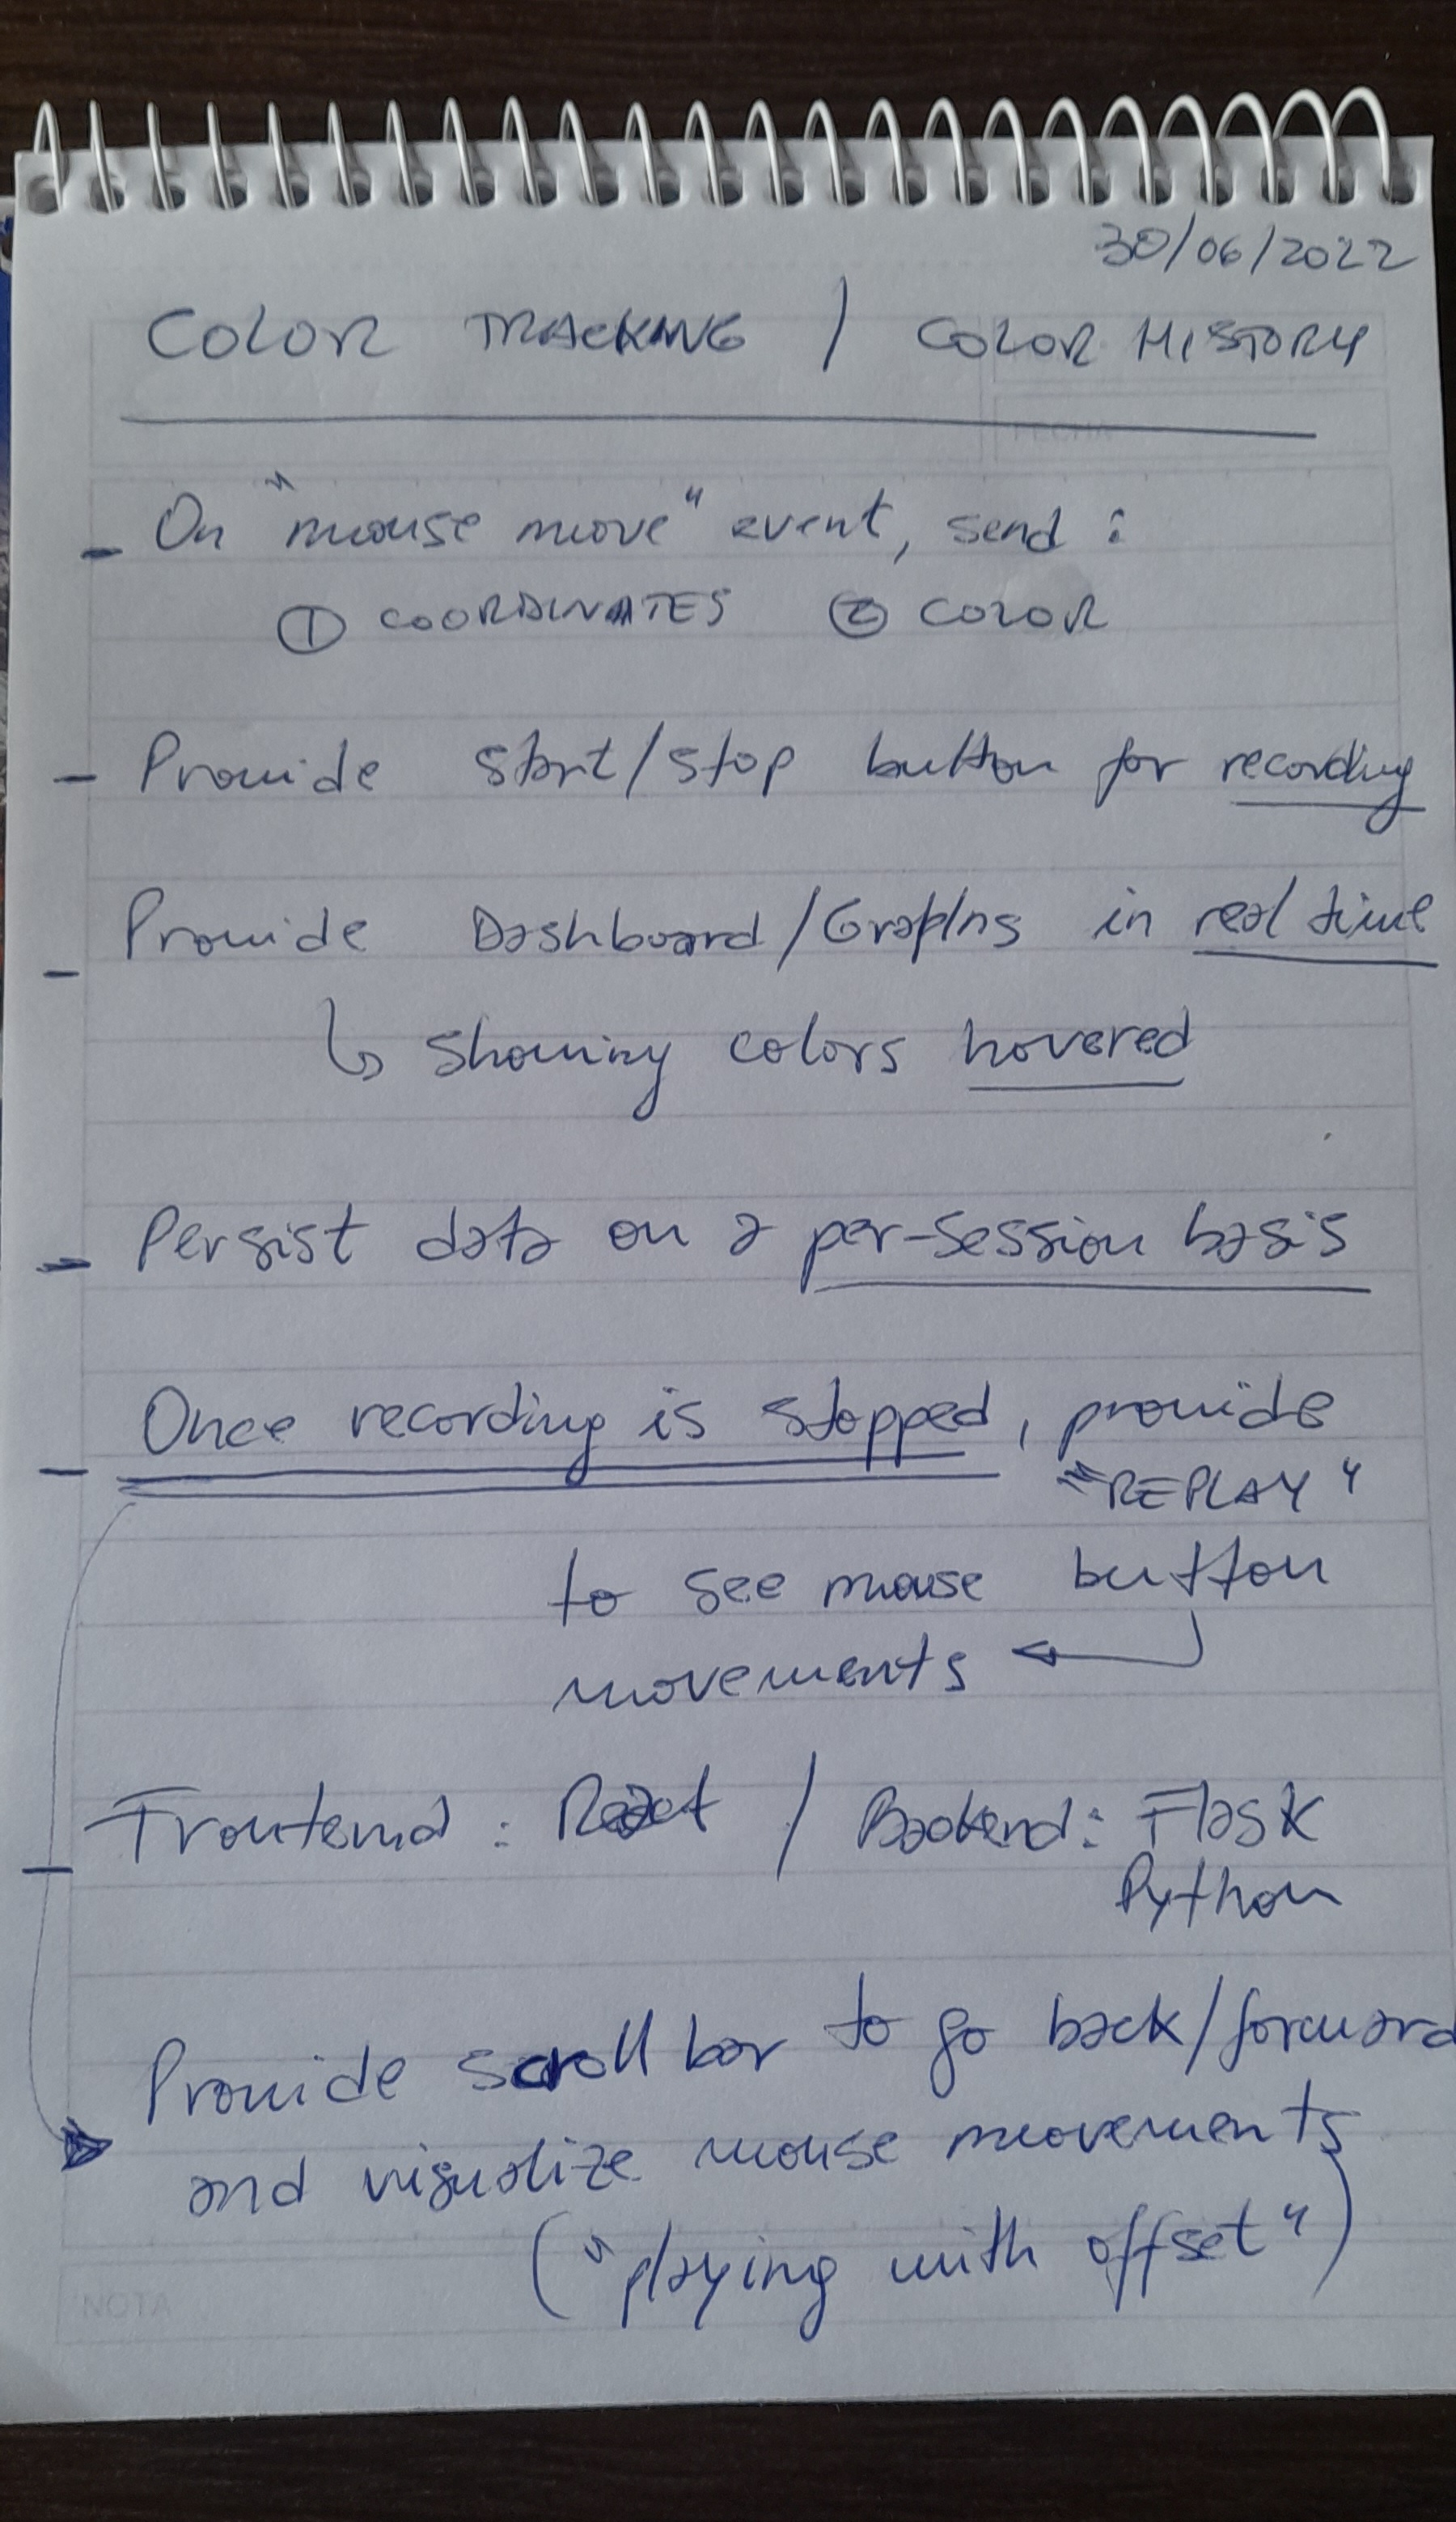 30/06/2022
COLOR TRACKING / COLOR HISTORY
FECHA
- On "mouse move" event, send :
① COORDINATES ② COLOR
- Provide start/stop button for recording
- Provide Dashboard/Graphs in real time
↳ showing colors hovered
- Persist data on a per-session basis
- Once recording is stopped, provide
"REPLAY"
to see mouse button
movements ←
- Frontend : React / Backend : Flask
Python
Provide scroll bar to go back/forward
and visualize mouse movements
("playing with offset")
NOTA